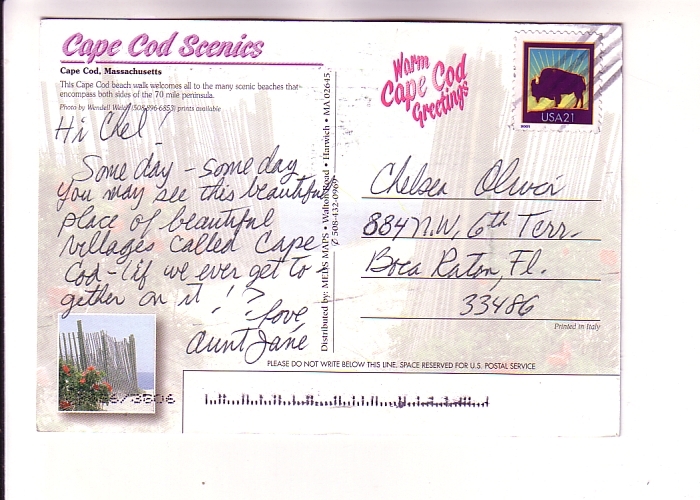 Cape Cod Scenics
Cape Cod, Massachusetts
This Cape Cod beach walk welcomes all to the many scenic beaches that
encompass both sides of the 70 mile peninsula.
Photo by Wendell (508-896-6853) prints available
Hi Chel -
Some day - some day
you may see this beautiful
place of beautiful
villages called Cape
Cod - (if we ever get to-
gether on it !?
Love
Aunt Jane
Distributed by: MEDS MAPS • Road • Harwich • MA 02645
508-432-0969
Warm
Cape Cod
Greetings
USA21
2001
Chelsea
884 N.W. 6th Terr.
Boca Raton, Fl.
33486
Printed in Italy
PLEASE DO NOT WRITE BELOW THIS LINE. SPACE RESERVED FOR U.S. POSTAL SERVICE